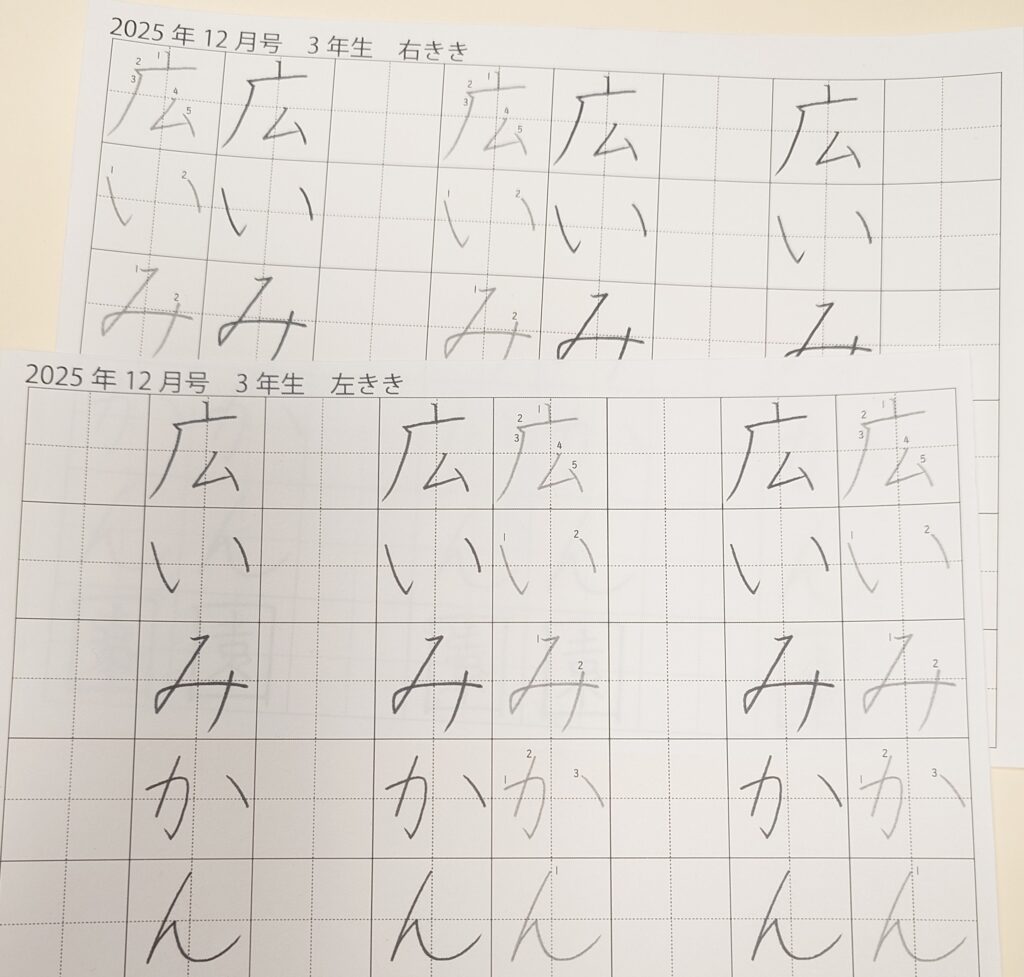 2025年12月号 3年生 右きき
広いみ
広いみ
広いみ
広いみ
広いみ
2025年12月号 3年生 左きき
広いみかん
広いみかん
広いみかん
広いみかん
広いみかん